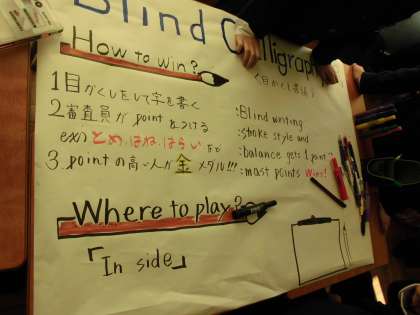 Blind Calligraphy
(目かくし書道)
How to win?
1 目かくしをして字を書く
2 審査員が point をつける
ex) とめ、はね、はらい など
3. point の高い人が 金 メダル!!!
:Blind writing
:stroke style and
:balance gets 1 point
:mast points Wins!
Where to play?
「In side」